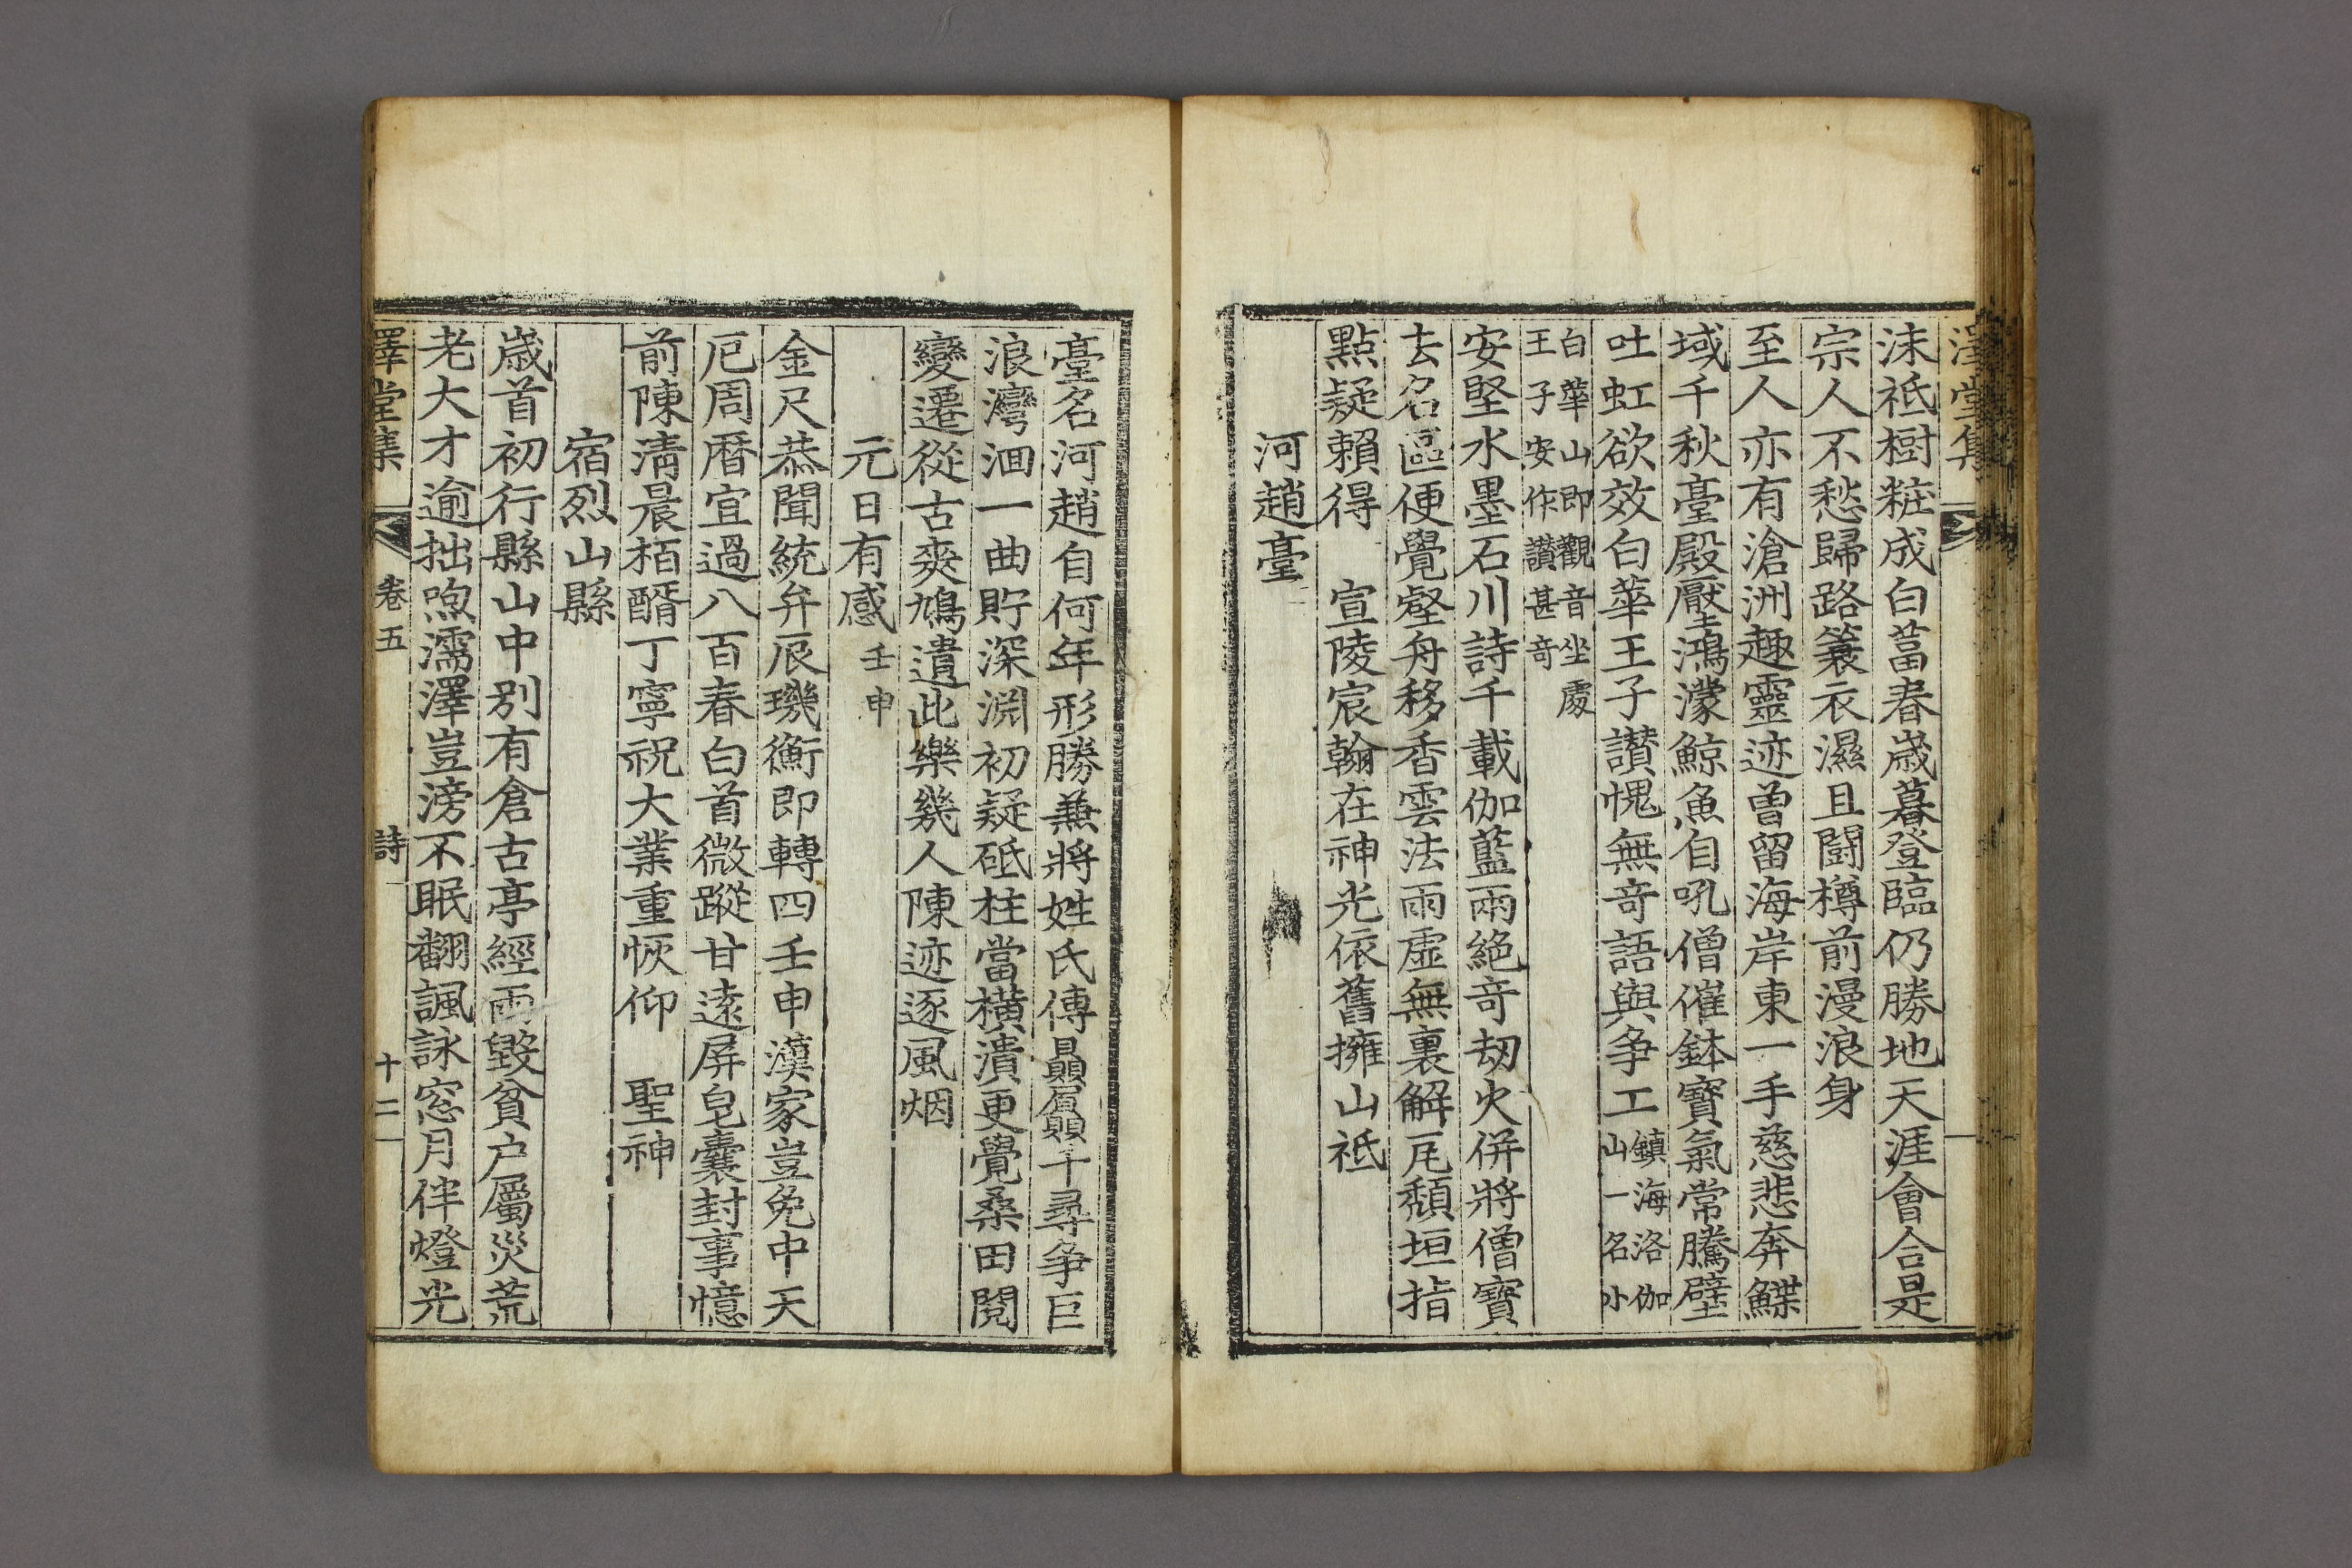 沫祗樹粧成白菖春歲暮登臨仍勝地天涯會合是
宗人不愁歸路簑衣濕且鬪樽前漫浪身
至人亦有滄洲趣靈迹曾留海岸東一手慈悲奔鰈
域千秋臺殿壓鴻濛鯨魚自吼僧催鉢寶氣常騰壁
吐虹欲效白華王子讃愧無奇語與争工
鎮海洛伽
山一名小
白華山即觀音坐處
王子安作讃甚奇
安堅水墨石川詩千載伽藍兩絶奇刧火併將僧寶
去名區便覺壑舟移香雲法雨虛無裏觧瓦頽垣指
點疑賴得 宣陵宸翰在神光依舊擁山祗
河趙臺
臺名河趙自何年形勝兼將姓氏傳贔屭千尋争巨
浪灣洄一曲貯深淵初疑砥柱當橫潰更覺桑田閱
變遷從古爽鳩遺此樂幾人陳迹逐風烟
元日有感壬申
金尺恭聞統弁辰璣衡即轉四壬申漢家豈免中天
厄周曆宜過八百春白首微蹤甘遠屏皂囊封事憶
前陳淸晨栢醑丁寧祝大業重恢仰 聖神
宿烈山縣
歲首初行縣山中別有倉古亭經雨毀貧戶屬災荒
老大才逾拙喣濡澤豈滂不眠翻諷詠窓月伴燈光
澤堂集 卷五 詩 十二